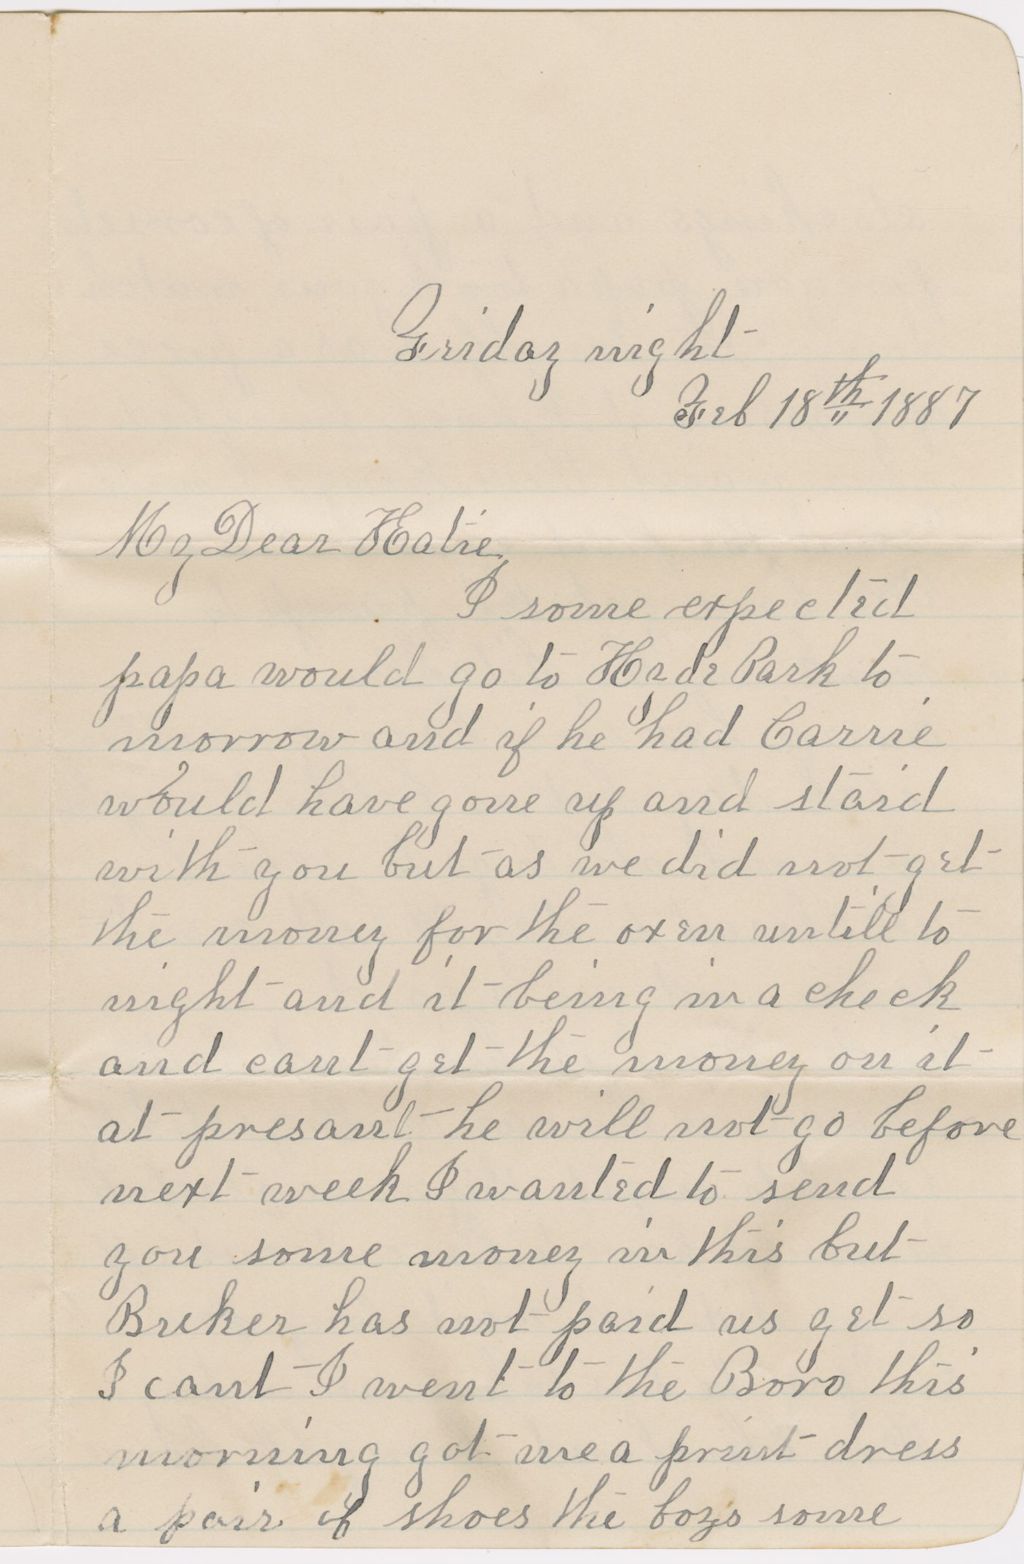 Friday night
Feb 18th 1887
My Dear Katie,
I some expected
papa would go to Hyde Park to
morrow and if he had Carrie
would have gone up and staid
with you but as we did not get
the money for the oxen untill to
night and it being in a check
and cant get the money on it
at presant he will not go before
next week I wanted to send
you some money in this but
Bucker has not paid us yet so
I cant I went to the Boro this
morning got me a print dress
a pair of shoes the boys some